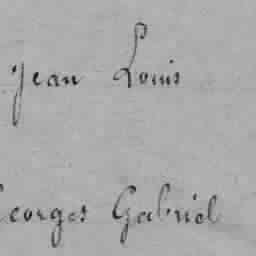 Jean Louis
Georges Gabriel